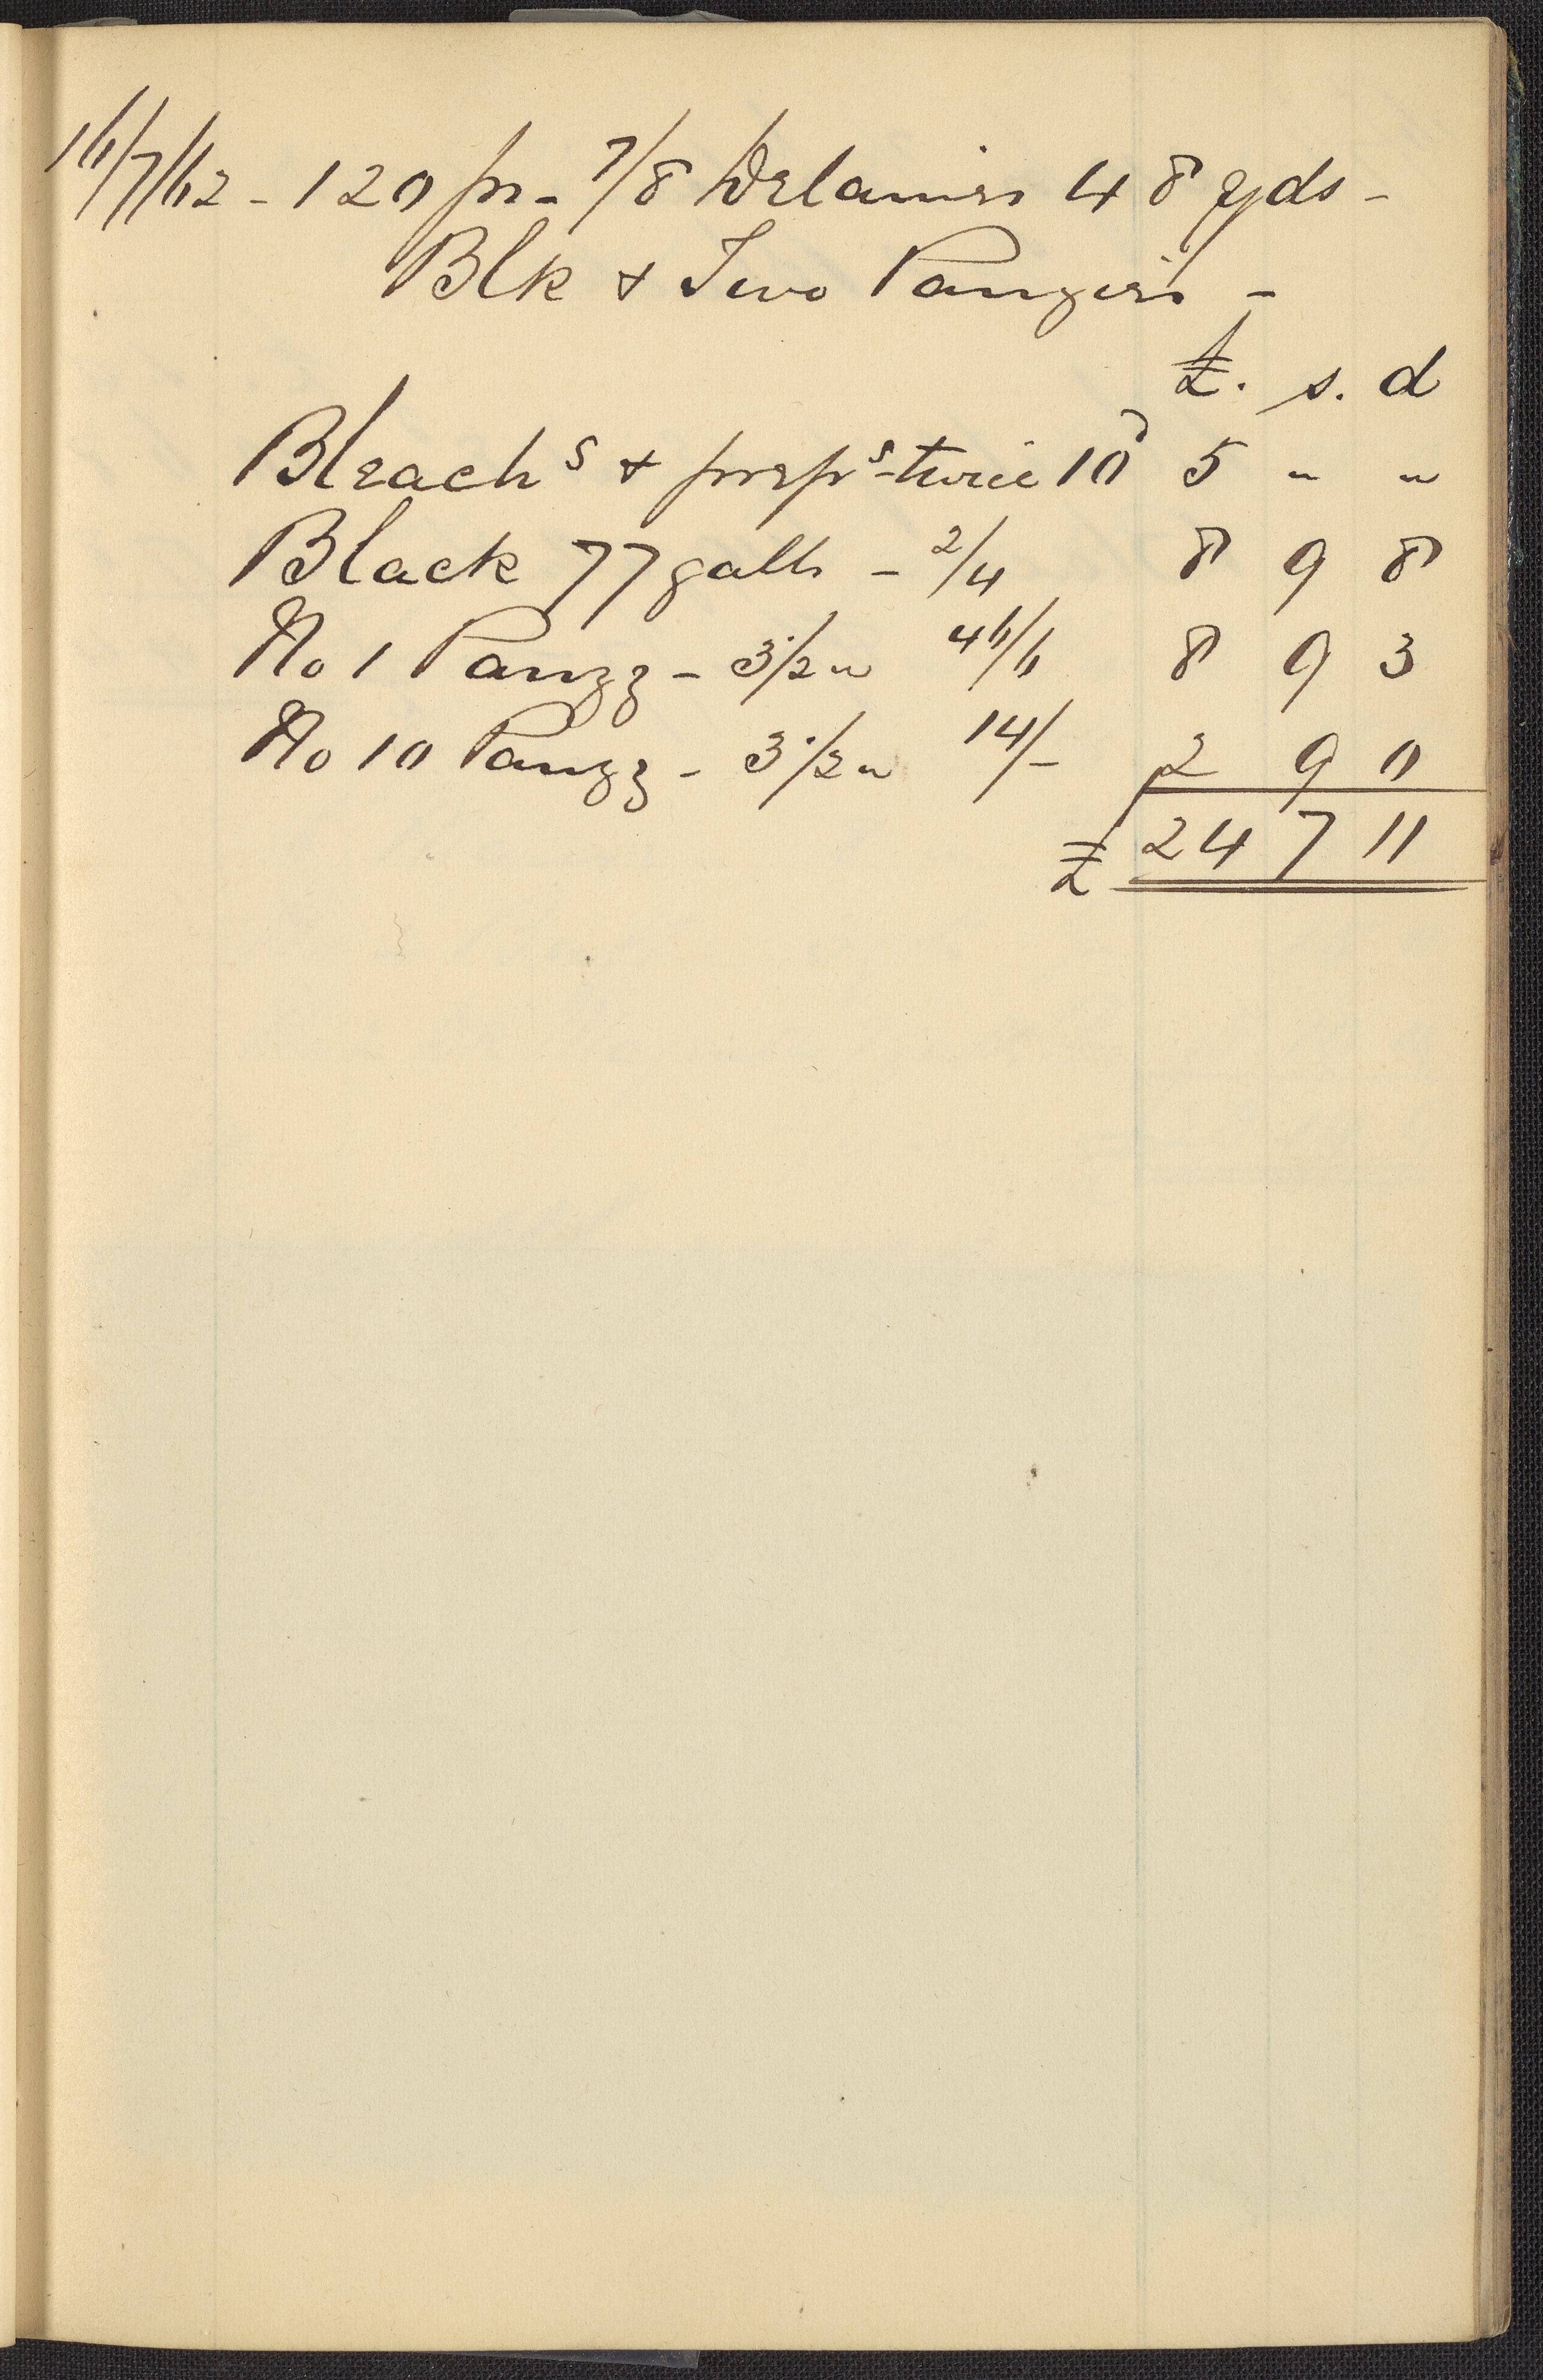 16/7/62 - 120 ps - 7/8 Delaines 48 yds -
Blk & Two Panzies -
£. s. d
Bleachs & preps - twice 10d 5 " "
Black 77 galls - 2/4 8 9 8
No 1 Panzy - 3 1/2 " 46/6 8 9 3
No 10 Panzy - 3 1/2 " 14/- 2 9 0
£ 24 7 11